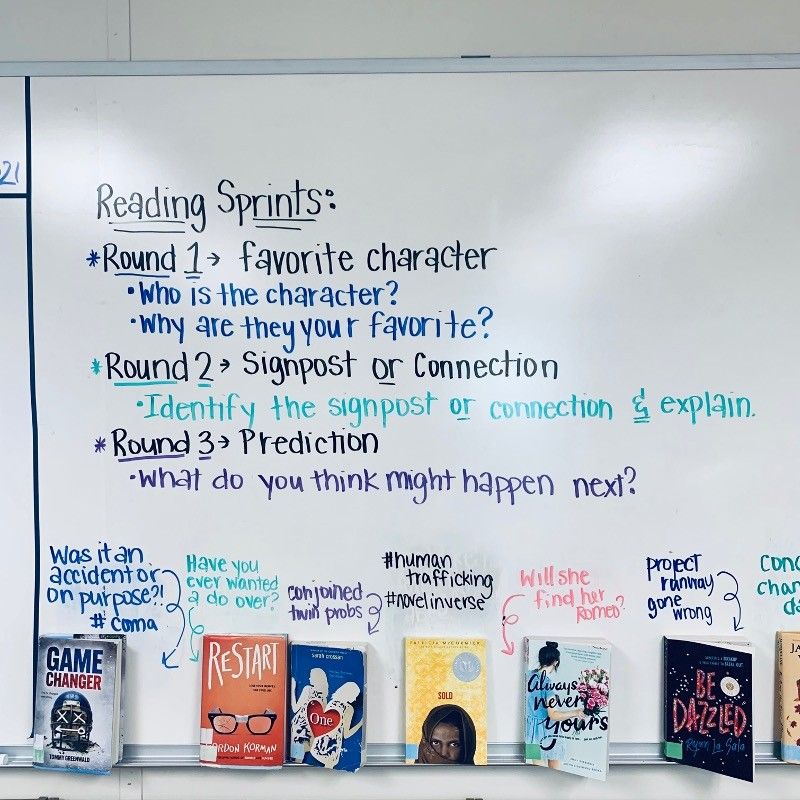 21
Reading Sprints:
*Round 1→ favorite character
•Who is the character?
•Why are they your favorite?
*Round 2→ Signpost or Connection
•Identify the signpost or connection & explain.
*Round 3→ Prediction
•What do you think might happen next?
Was it an
accident or
on purpose?!
#coma
Have you
ever wanted
a do over?
conjoined
twin probs
#human
trafficking
#novelinverse
Will she
find her
Romeo?
project
runway
gone
wrong
GAME
CHANGER
TOMMY GREENWALD
RESTART
GORDON KORMAN
sarah crossan
One
PATRICIA McCORMICK
SOLD
Always
never
yours
BE
DAZZLED
Ryan La Sala